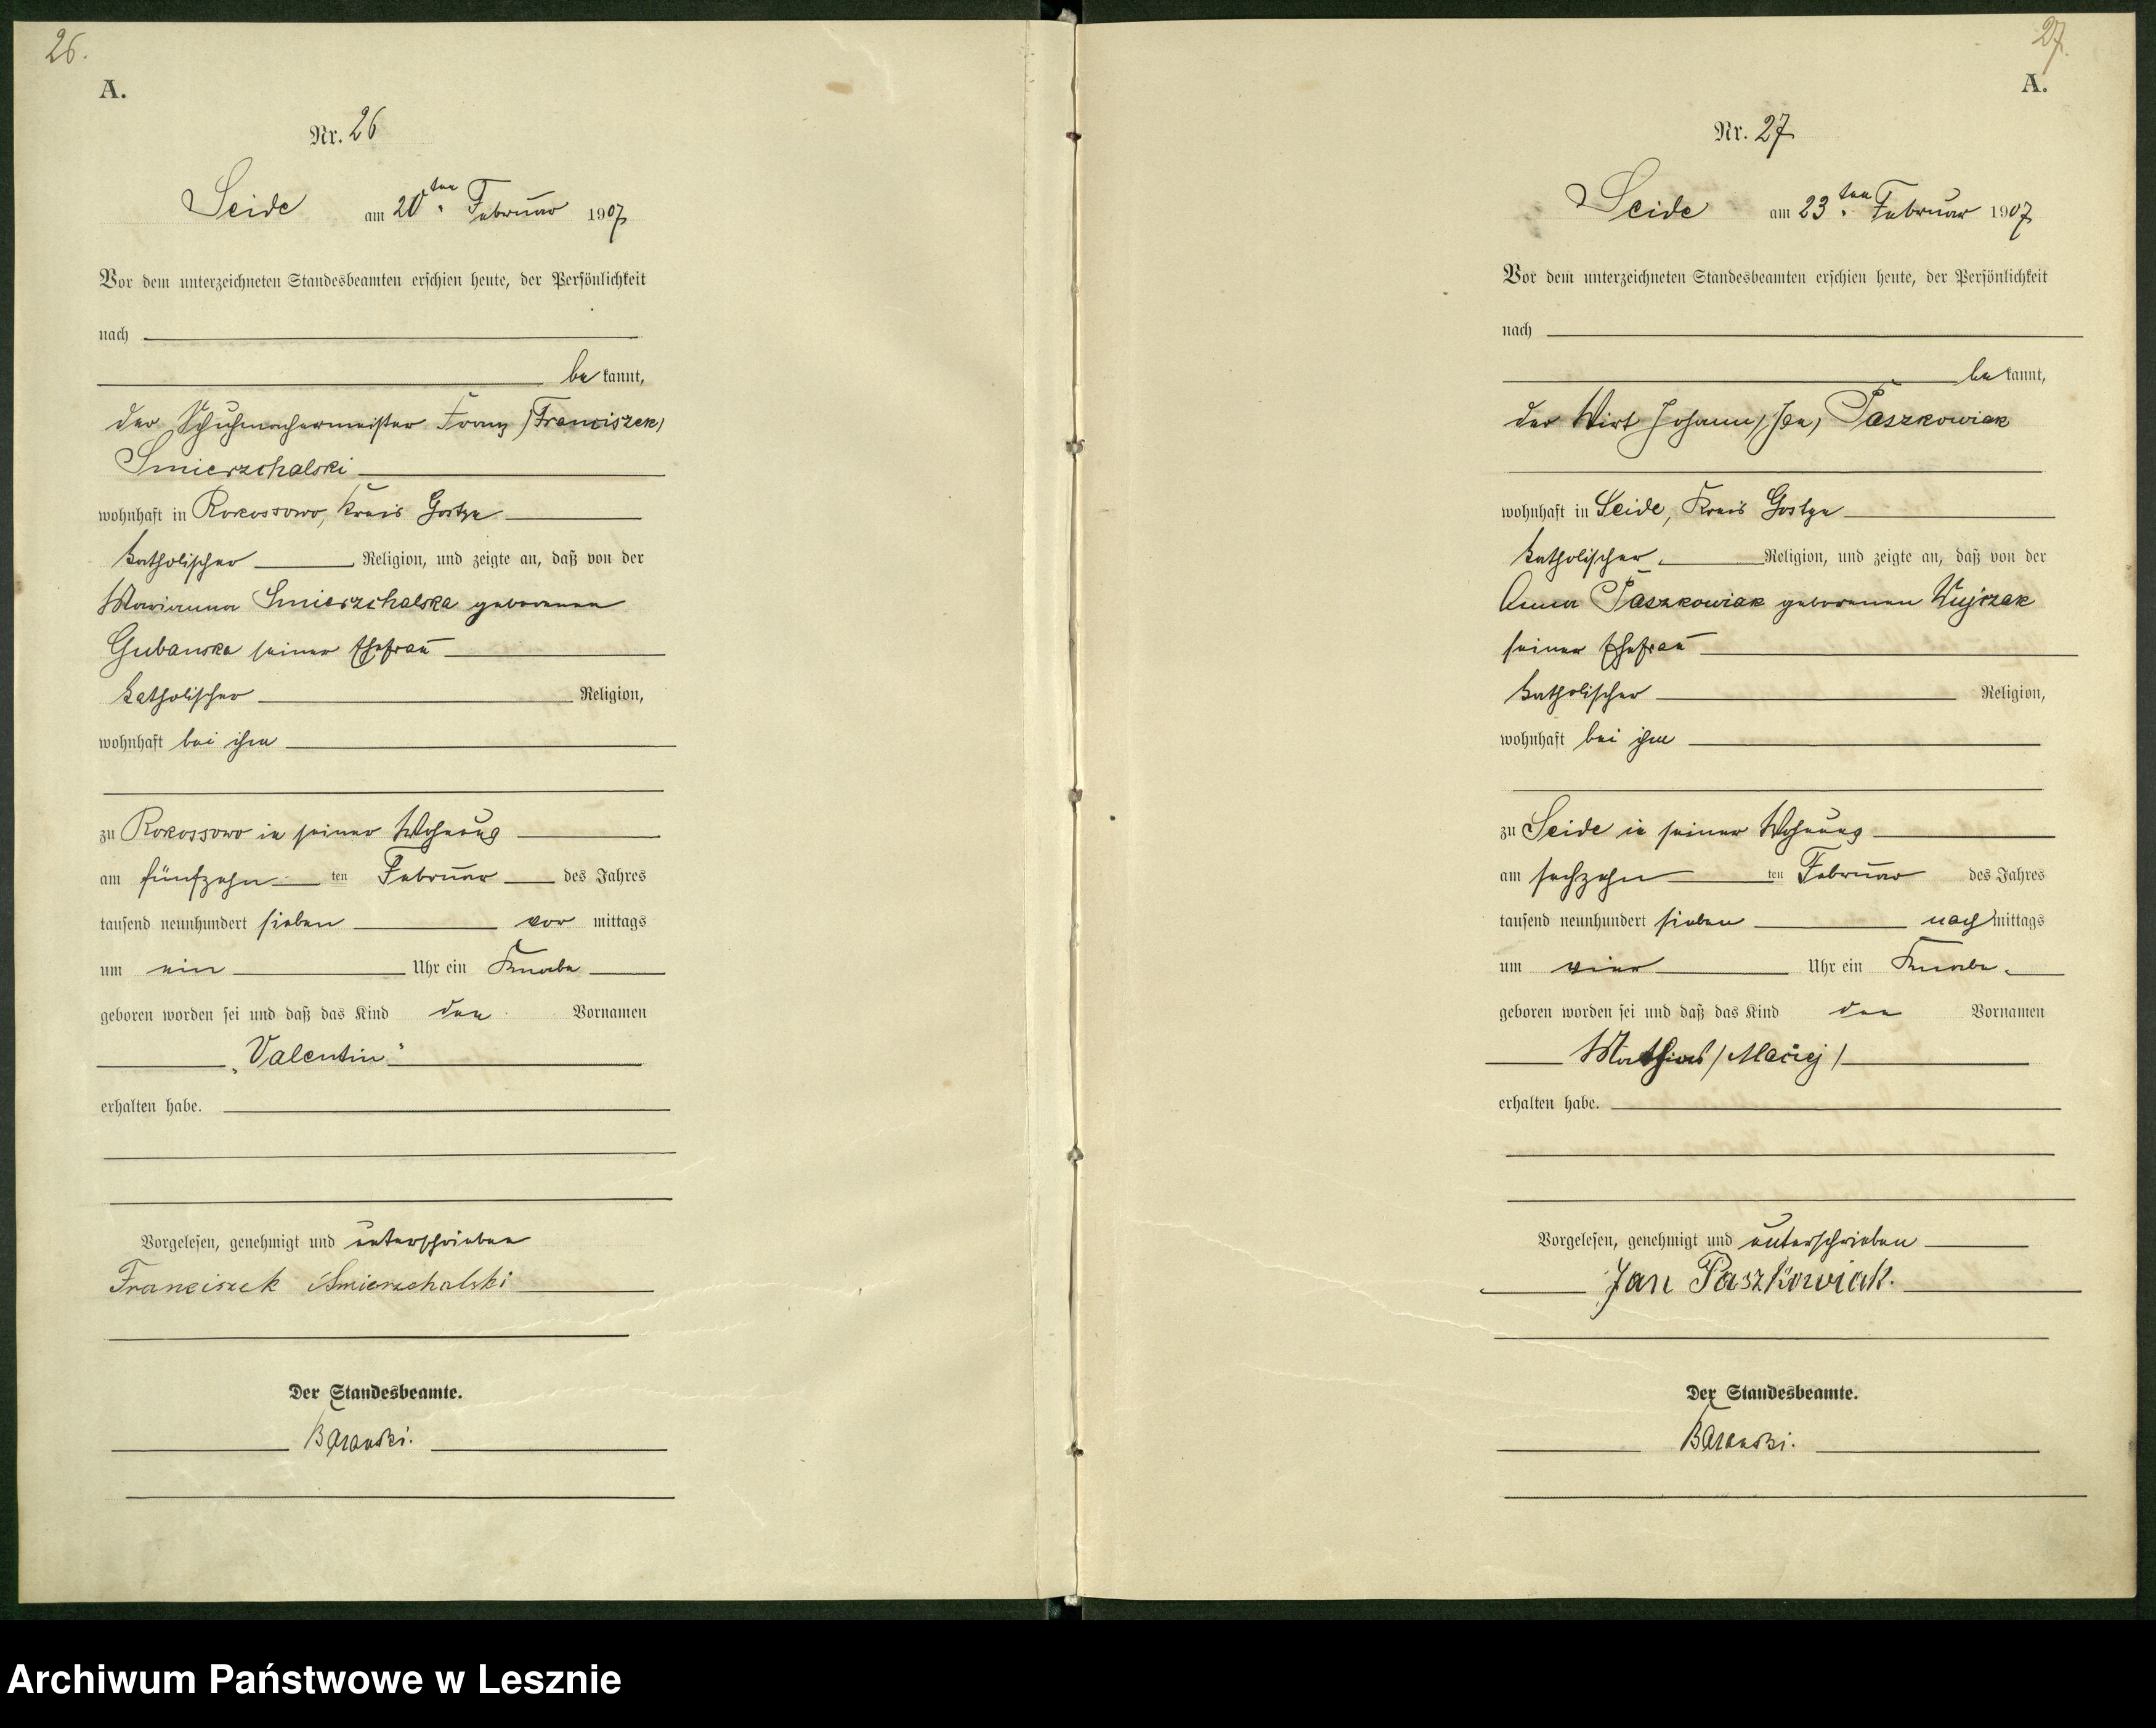 26.
A.
Nr. 26
Seide am 20ten Februar 1907
Vor dem unterzeichneten Standesbeamten erschien heute, der Persönlichkeit
nach
bekannt,
der Schuhmachermeister Franz (Franciszek)
Smierzchalski
wohnhaft in Rokossowo, Kreis Gostyn
katholischer Religion, und zeigte an, daß von der
Marianna Smierzchalska geborenen
Gubanska seiner Ehefrau
katholischer Religion,
wohnhaft bei ihm
zu Rokossowo in seiner Wohnung
am fünfzehn ten Februar des Jahres
tausend neunhundert sieben vor mittags
um ein Uhr ein Knabe
geboren worden sei und daß das Kind den Vornamen
„Valentin“
erhalten habe.
Vorgelesen, genehmigt und unterschrieben
Franciszek Śmierzchalski
Der Standesbeamte.
Baranski.
27.
A.
Nr. 27
Seide am 23ten Februar 1907
Vor dem unterzeichneten Standesbeamten erschien heute, der Persönlichkeit
nach
bekannt,
der Wirt Johann (Jan) Paszkowiak
wohnhaft in Seide, Kreis Gostyn
katholischer Religion, und zeigte an, daß von der
Anna Paszkowiak geborenen Wujczak
seiner Ehefrau
katholischer Religion,
wohnhaft bei ihm
zu Seide in seiner Wohnung
am sechzehn ten Februar des Jahres
tausend neunhundert sieben nach mittags
um vier Uhr ein Knabe
geboren worden sei und daß das Kind den Vornamen
Mathias (Maciej)
erhalten habe.
Vorgelesen, genehmigt und unterschrieben
Jan Paszkowiak.
Der Standesbeamte.
Baranski.
Archiwum Państwowe w Lesznie